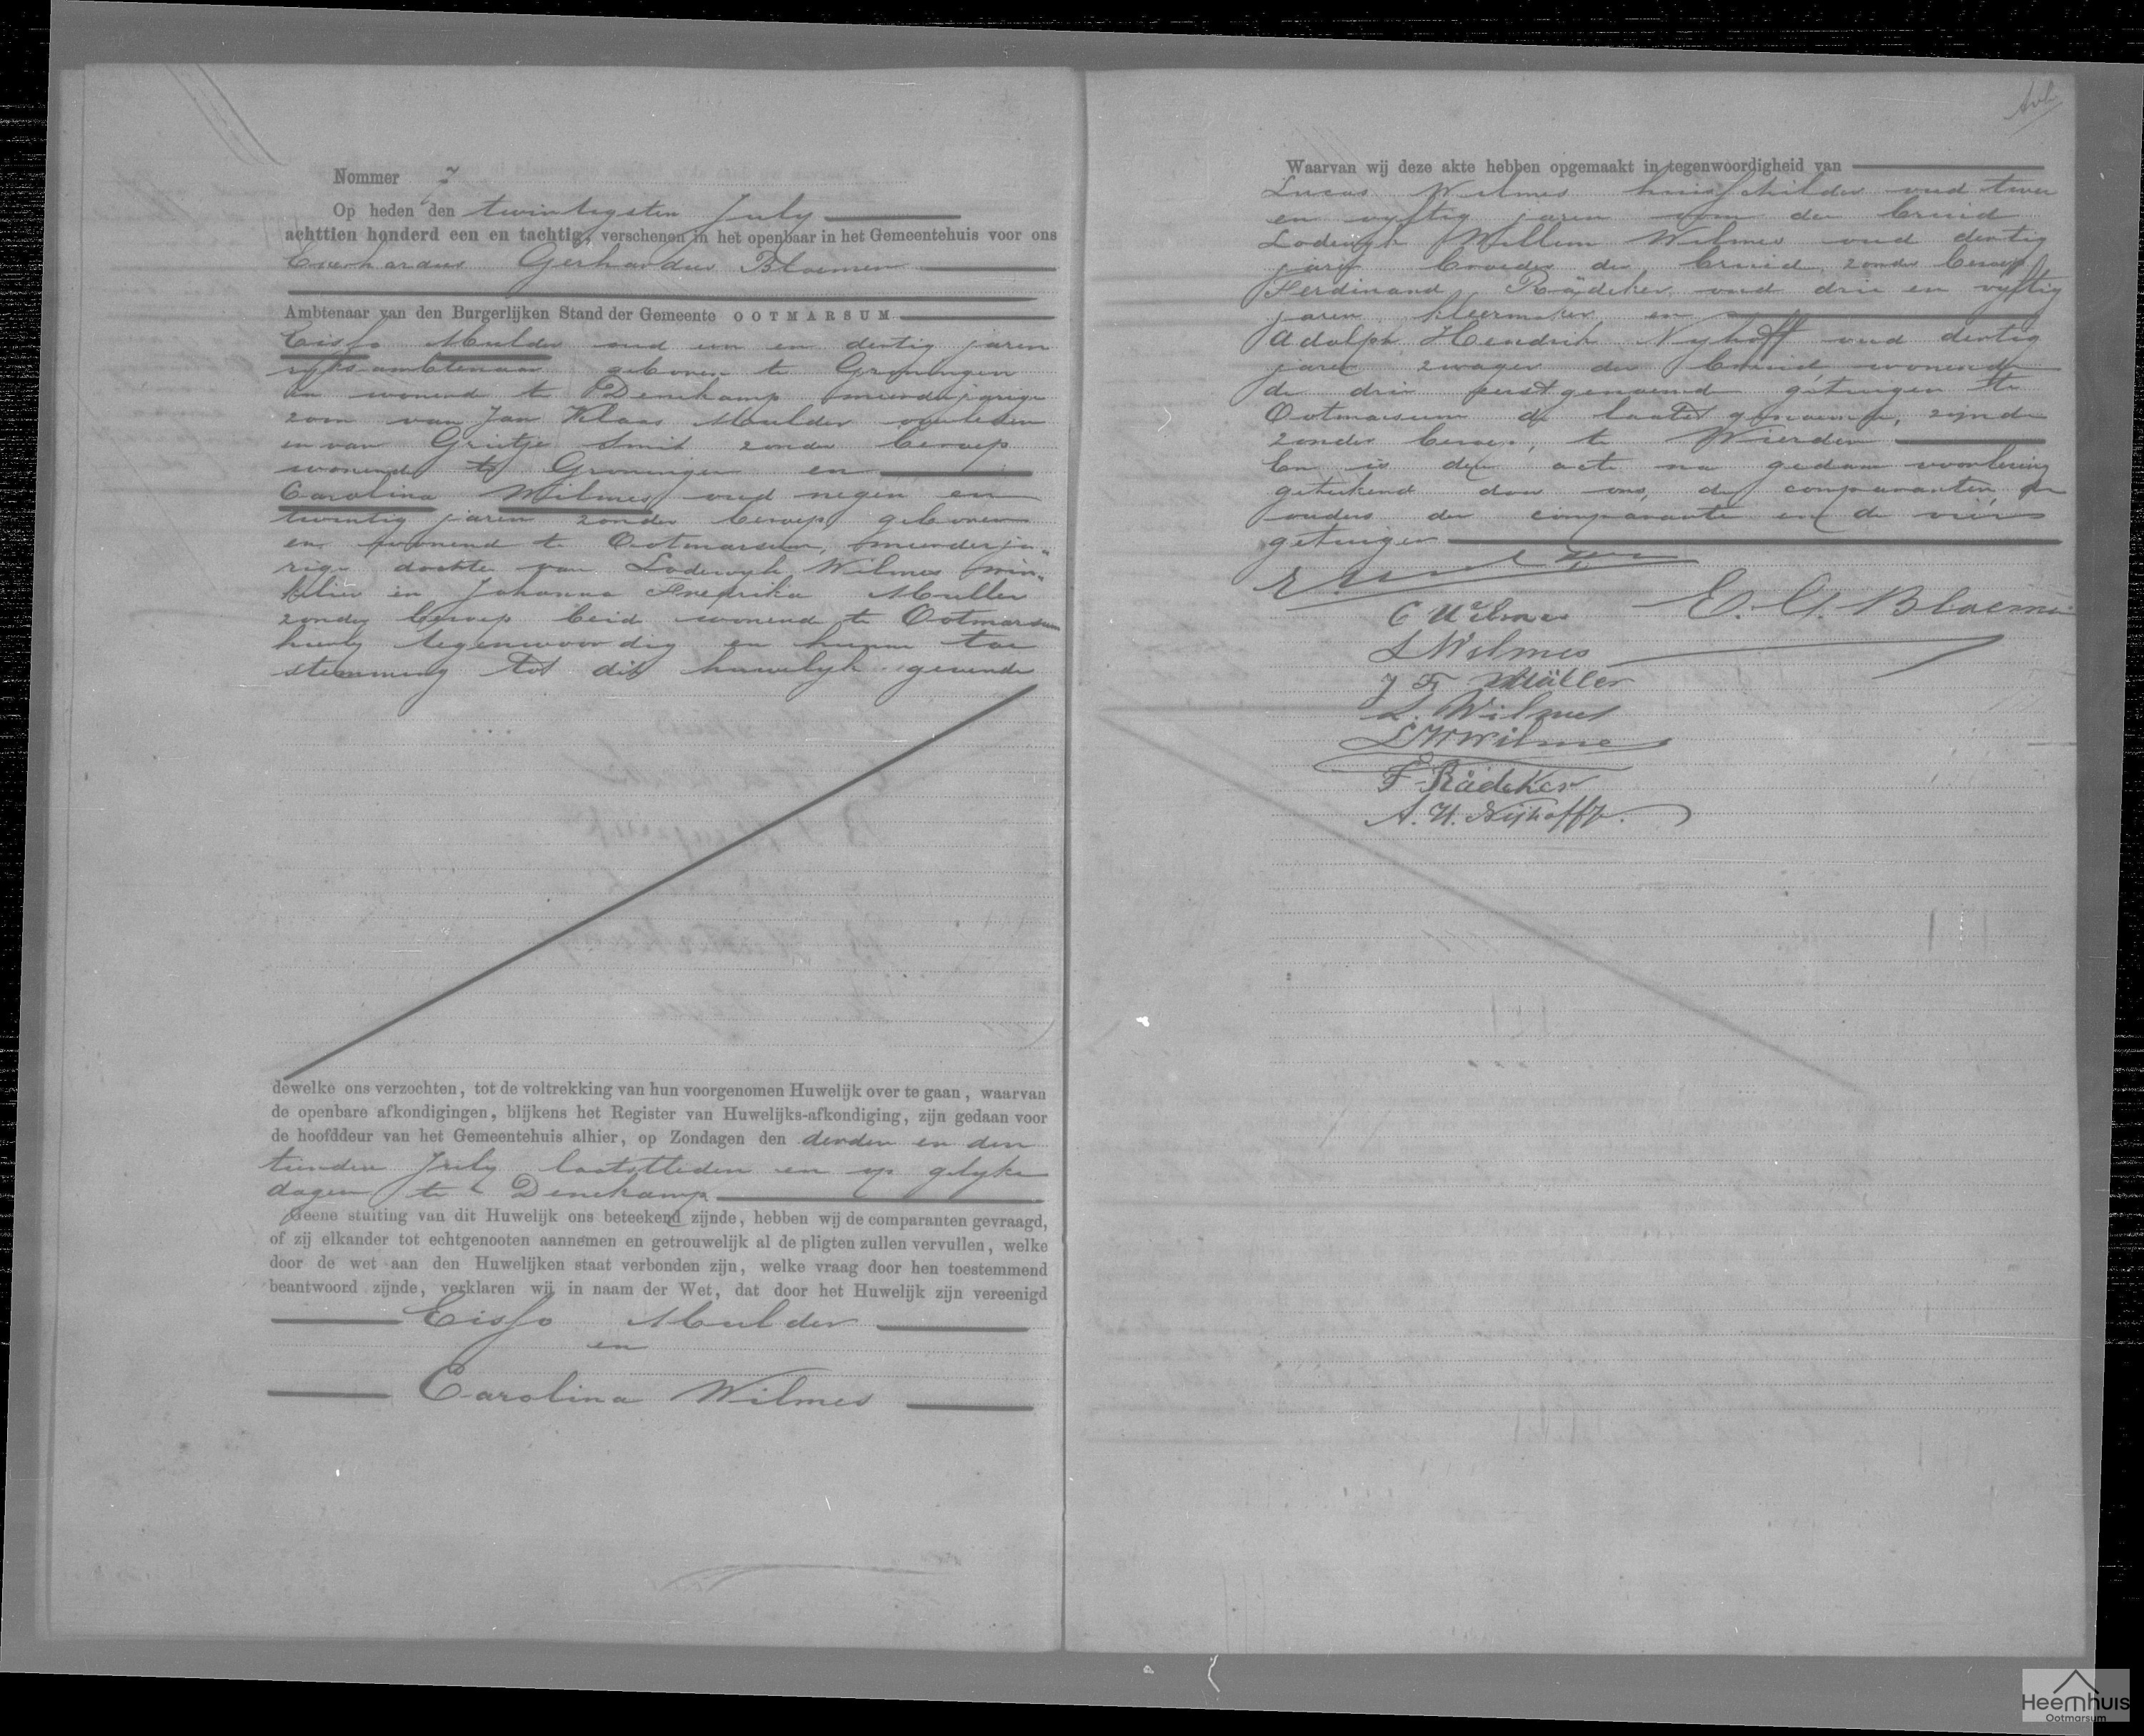 Nommer 7
Op heden den twintigsten July
achttien honderd een en tachtig, verschenen in het openbaar in het Gemeentehuis voor ons
Everhardus Gerhardus Bloemen
Ambtenaar van den Burgerlijken Stand der Gemeente OOTMARSUM
Eisso Mulder oud een en dertig jaren
rijks ambtenaar geboren te Groningen
en wonend te Denekamp meerderjarige
zoon van Jan Klaas Mulder overleden
en van Grietje Smit zonder beroep
wonende te Groningen en
Carolina Wilmes oud negen en
twintig jaren zonder beroep geboren
en wonend te Ootmarsum, meerderja„
rige dochter van Lodewyk Wilmes win„
kelier en Johanna Fredrika Muller
zonder beroep beide wonende te Ootmarsum
hierby tegenwoordig en hunne toe
stemming tot dit huwelyk gevende
dewelke ons verzochten, tot de voltrekking van hun voorgenomen Huwelijk over te gaan, waarvan
de openbare afkondigingen, blijkens het Register van Huwelijks-afkondiging, zijn gedaan voor
de hoofddeur van het Gemeentehuis alhier, op Zondagen den derden en den
tienden July laatstleden en op gelyke
dagen te Denekamp
Geene stuiting van dit Huwelijk ons beteekend zijnde, hebben wij de comparanten gevraagd,
of zij elkander tot echtgenooten aannemen en getrouwelijk al de pligten zullen vervullen, welke
door de wet aan den Huwelijken staat verbonden zijn, welke vraag door hen toestemmend
beantwoord zijnde, verklaren wij in naam der Wet, dat door het Huwelijk zijn vereenigd
Eisso Mulder
en
Carolina Wilmes
Waarvan wij deze akte hebben opgemaakt in tegenwoordigheid van
Lucas Wilmes huisschilder oud twee
en vyftig jaren oom der bruid
Lodewyk Willem Wilmes oud dertig
jaren broeder der bruid, zonder beroep
Ferdinand Rädeker oud drie en vyftig
jaren kleermaker en
Adolph Hendrik Nyhoff oud dertig
jaren zwager der bruid wonende
de drie eerstgenoemde getuigen te
Ootmarsum de laatstgenoemde, zijnde
zonder beroep, te Wierden
En is deze acte na gedane voorlezing
geteekend door ons, de comparanten, de
ouders der comparante en de vier
getuigen
E Mulder
C Wilmes E. G. Bloemen
L Wilmes
J F Müller
L. Wilmes
L W Wilmes
F. Rädeker
A. H. Nijhoff
Heemhuis
Ootmarsum